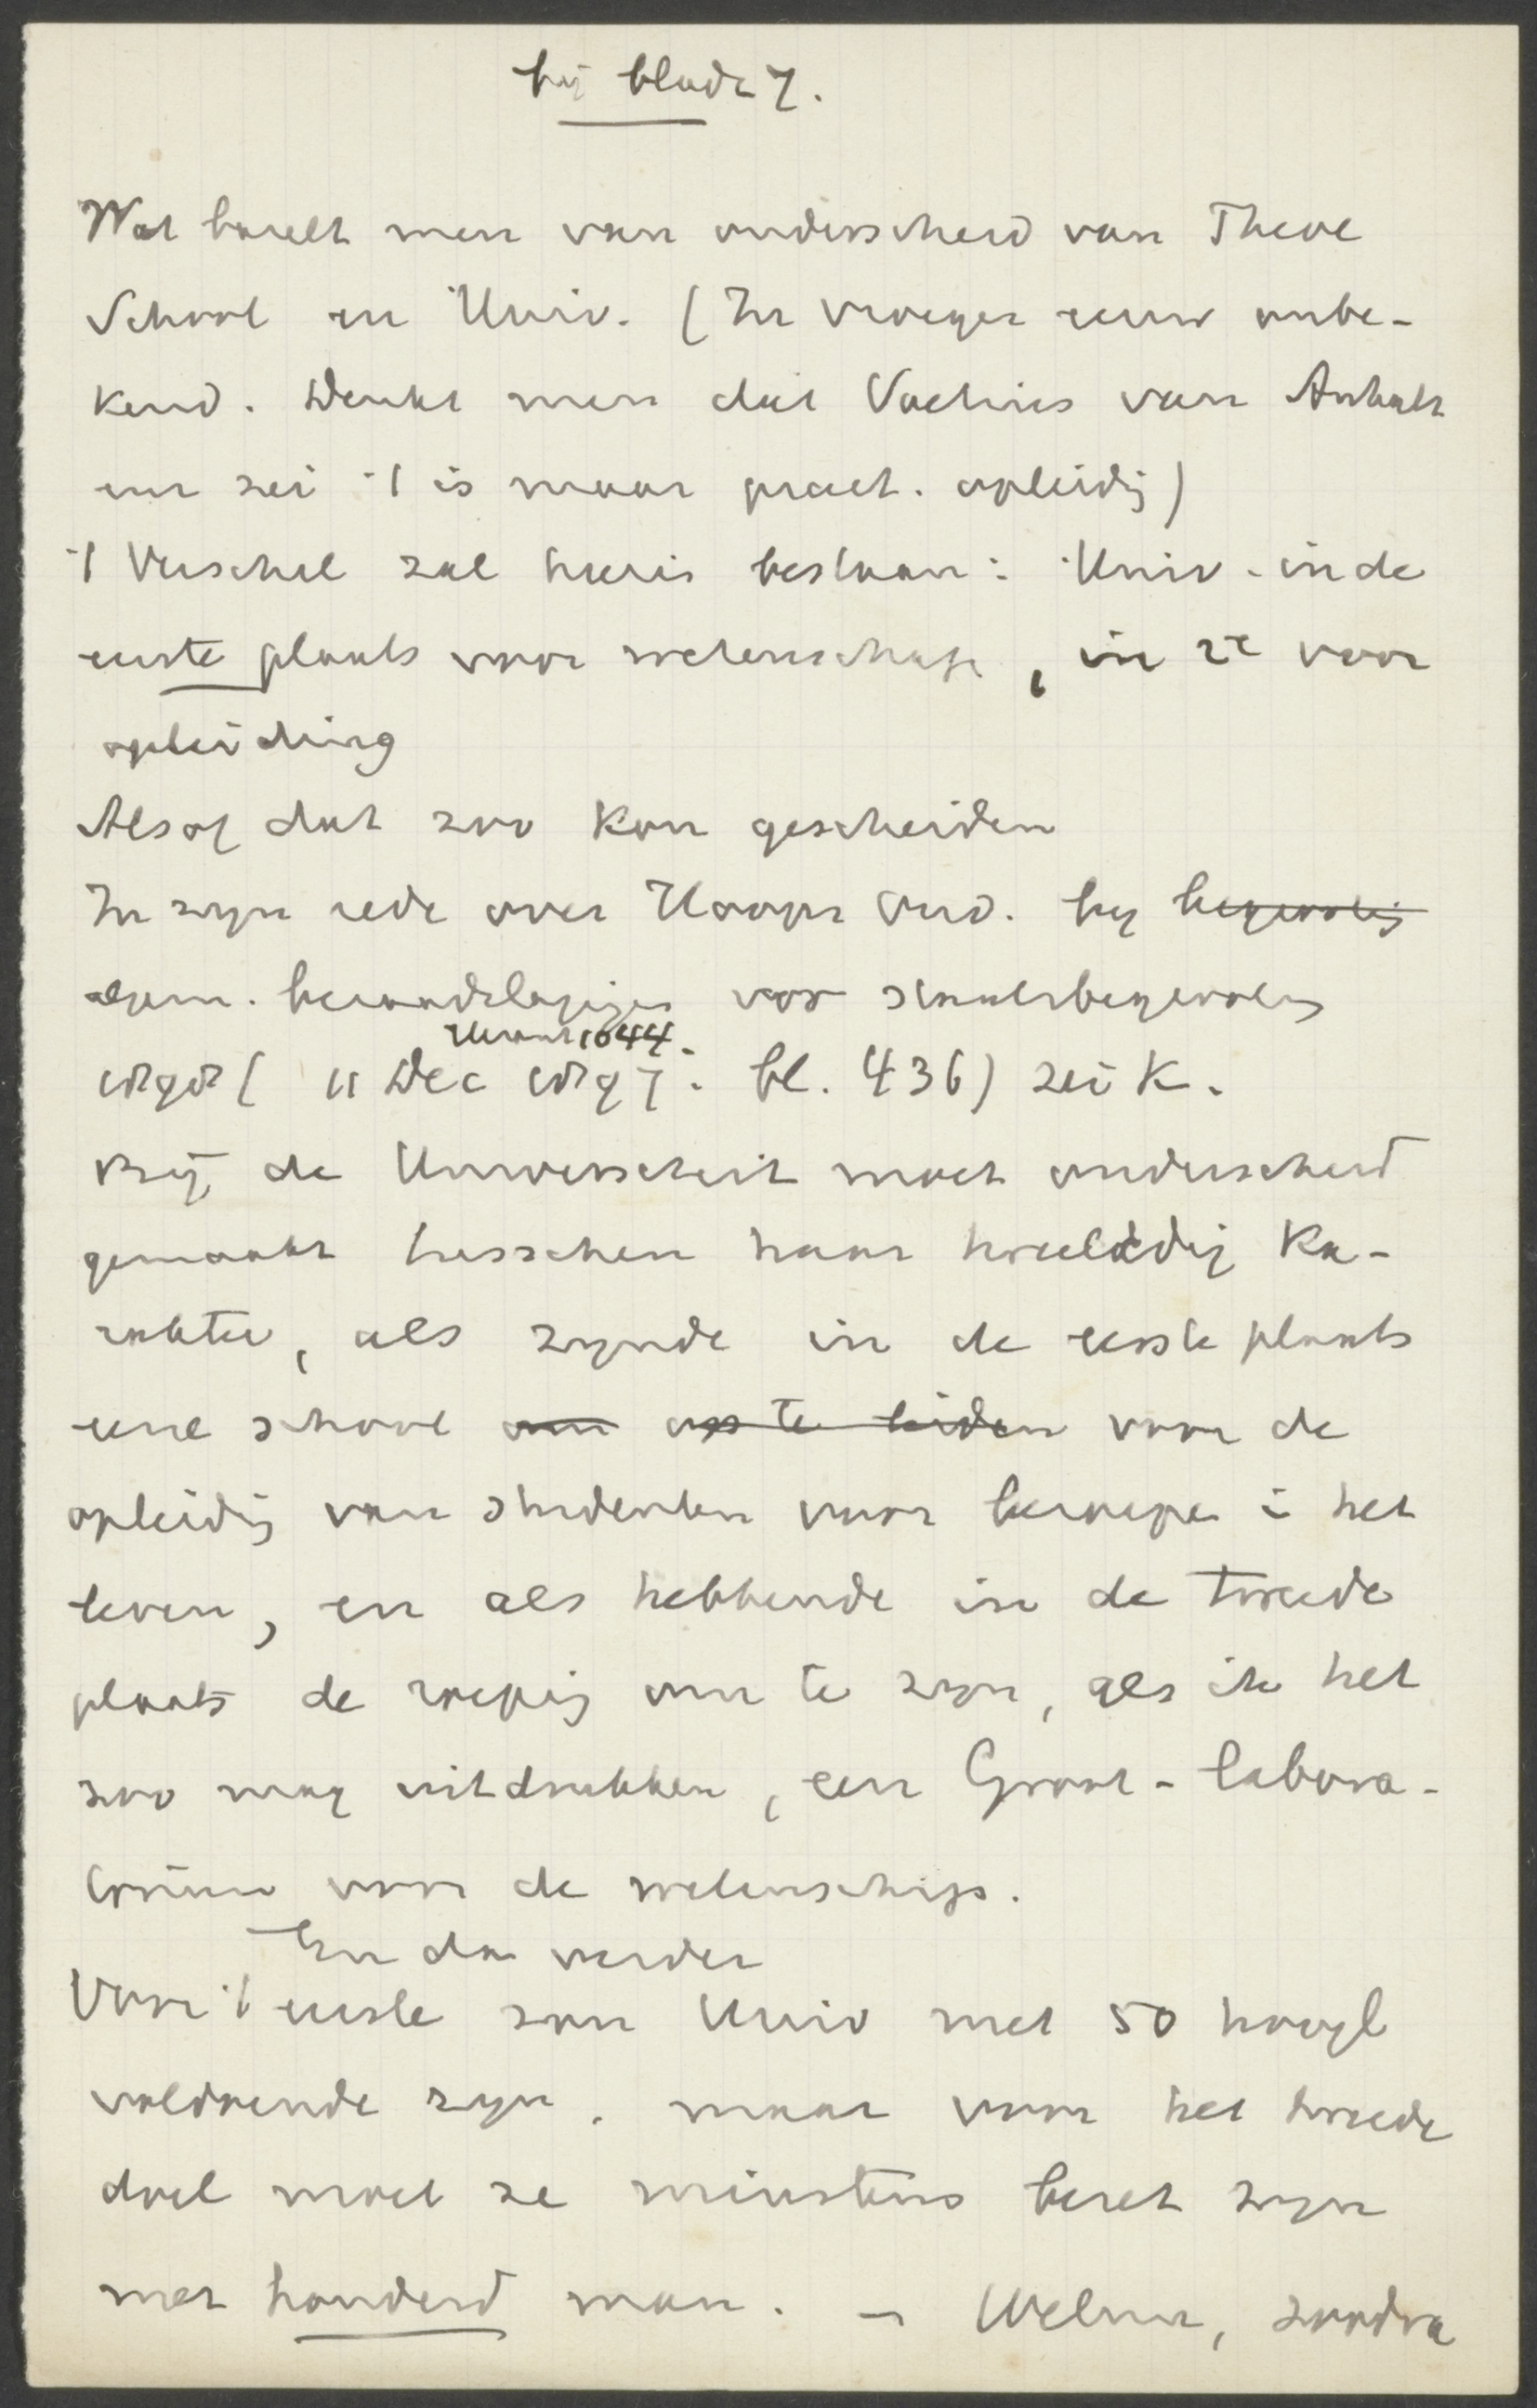 bij bladz 7.
Wat baselt men van onderscheid van Theol
School en Univ. (In vroeger eeuw onbe-
kend. Denkt men dat Voetius van Anhalt
een zei 't is maar pract. opleidij)
't Verschil zal hierin bestaan: Univ. in de
eerste plaats voor wetenschap, in 2e voor
opleiding
Alsof dat zoo kon gescheiden
In zijn rede over Hooger Ond. bij begrootij
algem. beraadslagingen voor staatsbegrooting
1898 (11 Dec 1897. bl. 436) zei K.
1044.
Bij de Universiteit moet onderscheid
gemaakt tusschen haar tweeledig ka-
rakter, als zijnde in de eerste plaats
eene school om op te leiden voor de
opleidij van studenten voor beroepen i het
leven, en als hebbende in de tweede
plaats de roepij om te zijn, als ik het
zoo mag uitdrukken, een Groot-labora-
torium voor de wetenschap.
En dan verder
Voor 't eerste zou Univ met 50 hoogl
voldoende zijn. maar voor het tweede
doel moet ze minstens bezet zijn
met honderd man. — Welnu, zoodra